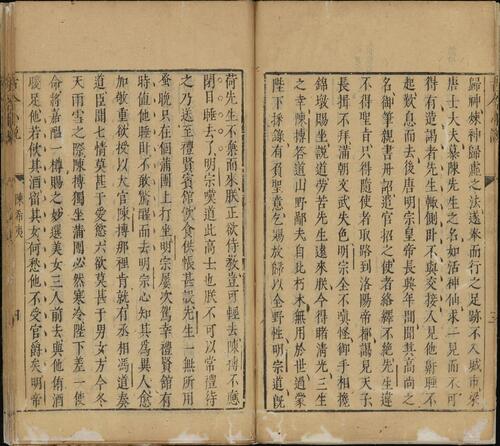 歸神煉神歸虛之法遂來而行之足跡不入城市梁
唐士大夫慕陳先生之名如活神仙求一見而不可
得有造謁者先生輒側卧不與交接人見他鼾睡不
起歎息而去後唐明宗皇帝長興年間聞其高尚之
名御筆親書丹詔遣官招之使者絡繹不絕先生違
不得聖旨只得隨使者取路到洛陽帝都謁見天子
長揖不拜滿朝文武失色明宗全不嗔怪御手相攙
錦墩賜坐說道勞苦先生遠來朕今得睹清光三生
之幸陳摶答道山野鄙夫自比朽木無用於世過蒙
陛下採錄有負聖意乞賜放歸以全野性明宗道既
荷先生不棄而來朕正欲侍教豈可輕去陳摶不應
閉目睡去了明宗嘆道此高士也朕不可以常禮待
之乃送至禮賢賓館飲食供帳甚設先生一無所用
蚤晚只在個蒲團上打坐明宗屢次駕幸禮賢館有
時值他睡卧不敢驚醒而去明宗心知其為異人愈
加敬重欲授以大官陳摶那裡肯就有丞相馮道奏
道臣聞七情莫甚于愛慾六欲莫甚于男女方今冬
天雨雪之際陳摶獨坐蒲團必然寒冷陛下差一使
命將嘉醞一樽賜之妙選美女三人前去與他侑酒
煖足他若飲其酒留其女何愁他不受官爵矣明帝
陳希夷